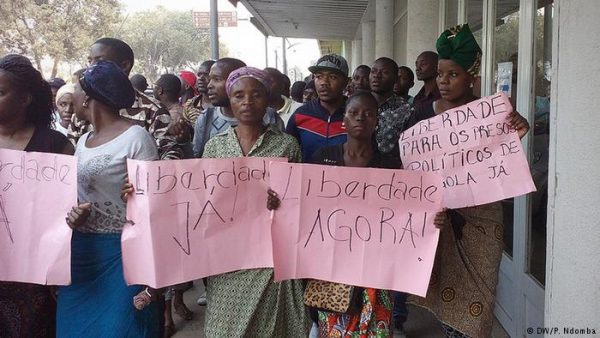 JÁ!
Liberdade
JÁ!
Liberdade
AGORA!
LIBERDADE
PARA OS PRESOS
POLÍTICOS DE
OLA JÁ
© DW/P. Ndomba